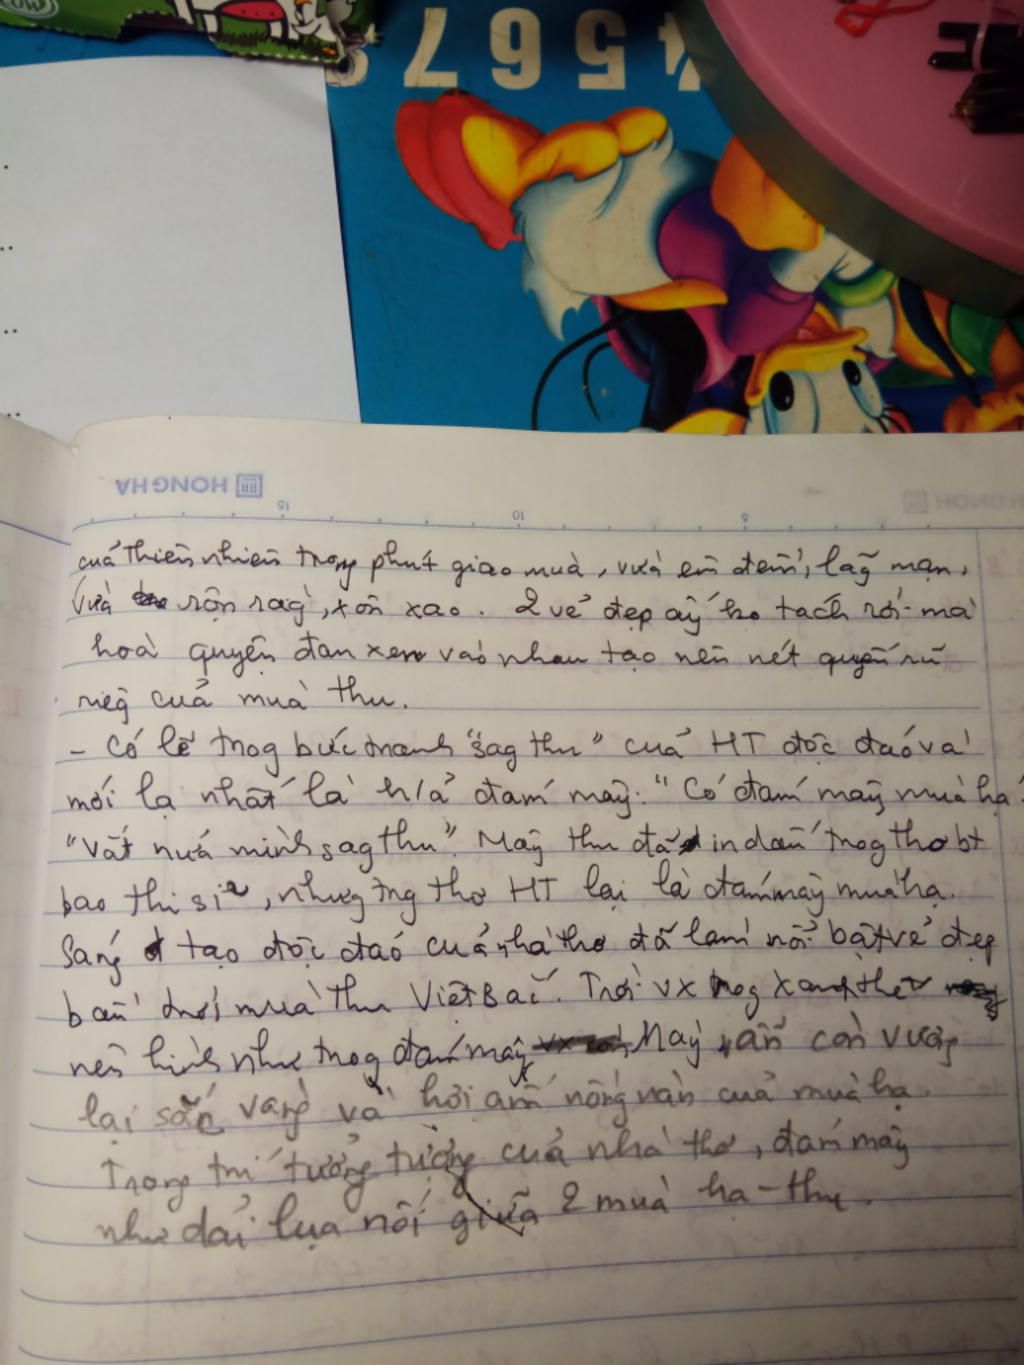 4567
HONG HA
15
10
5
của thiên nhiên trong phút giao mùa, vừa êm đềm, lãg mạn,
vừa rộn ràg, xôn xao. 2 vẻ đẹp ấy ko tách rời mà
hoà quyện đan xen vào nhau tạo nên nét quyến rũ
riêg của mùa thu.
- Có lẽ trog bức tranh "Sag thu" của HT độc đáo và
mới lạ nhất là h/ả đám mây: "Có đám mây mùa hạ
"Vắt nửa mình sag thu". Mây thu đã in dấu trog thơ bt
bao thi sĩ, nhưg trg thơ HT lại là đám mây mùa hạ.
Sáng tạo độc đáo của nhà thơ đã làm nổi bật vẻ đẹp
bầu trời mùa thu Việt Bắc. Trời vx trog xanh thế
nên hình như trog đám mây vẫn còn vương
lại sắc vàng và hơi ấm nồng nàn của mùa hạ.
Trong trí tưởng tượng của nhà thơ, đám mây
như dải lụa nối giữa 2 mùa hạ - thu.